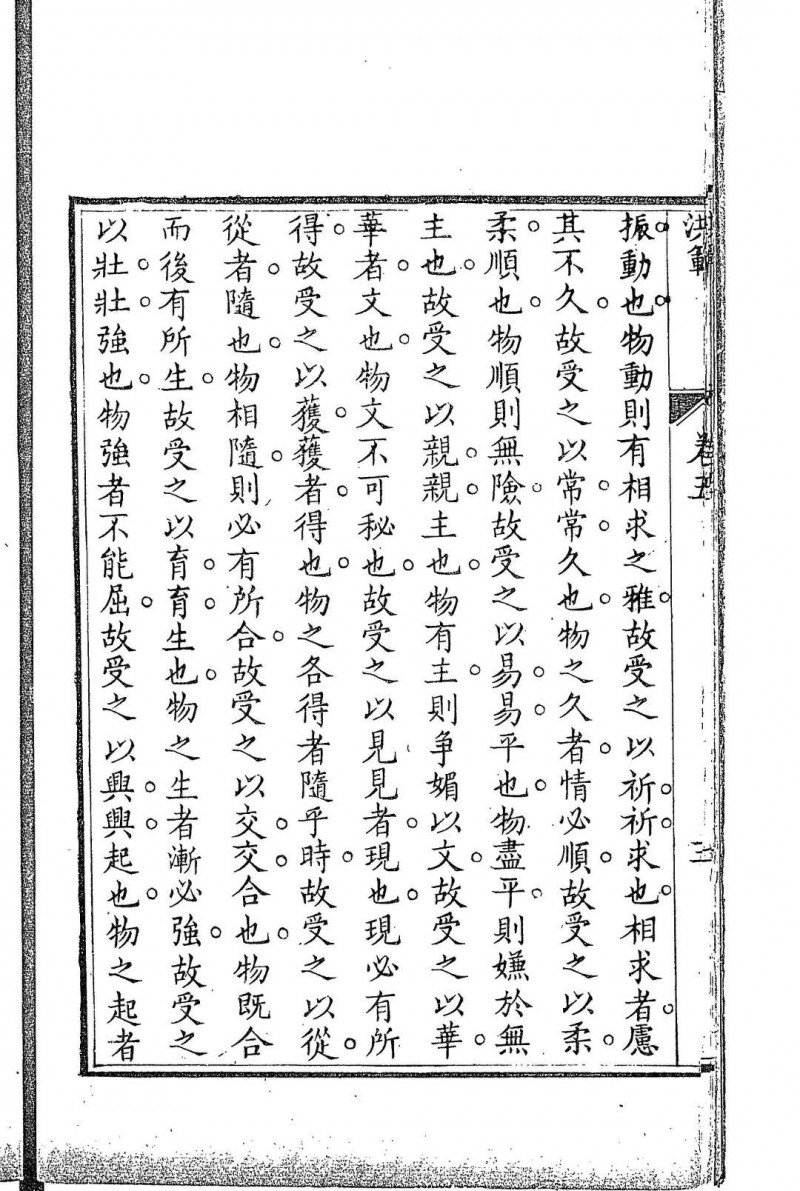 洪範 卷五 三
振動也物動則有相求之雅故受之以祈祈求也相求者慮
其不久故受之以常常久也物之久者情必順故受之以柔
柔順也物順則無險故受之以易易平也物盡平則嫌於無
主也故受之以親親主也物有主則爭媚以文故受之以華
華者文也物文不可秘也故受之以見見者現也現必有所
得故受之以獲獲者得也物之各得者隨乎時故受之以從
從者隨也物相隨則必有所合故受之以交交合也物既合
而後有所生故受之以育育生也物之生者漸必強故受之
以壯壯強也物強者不能屈故受之以興興起也物之起者